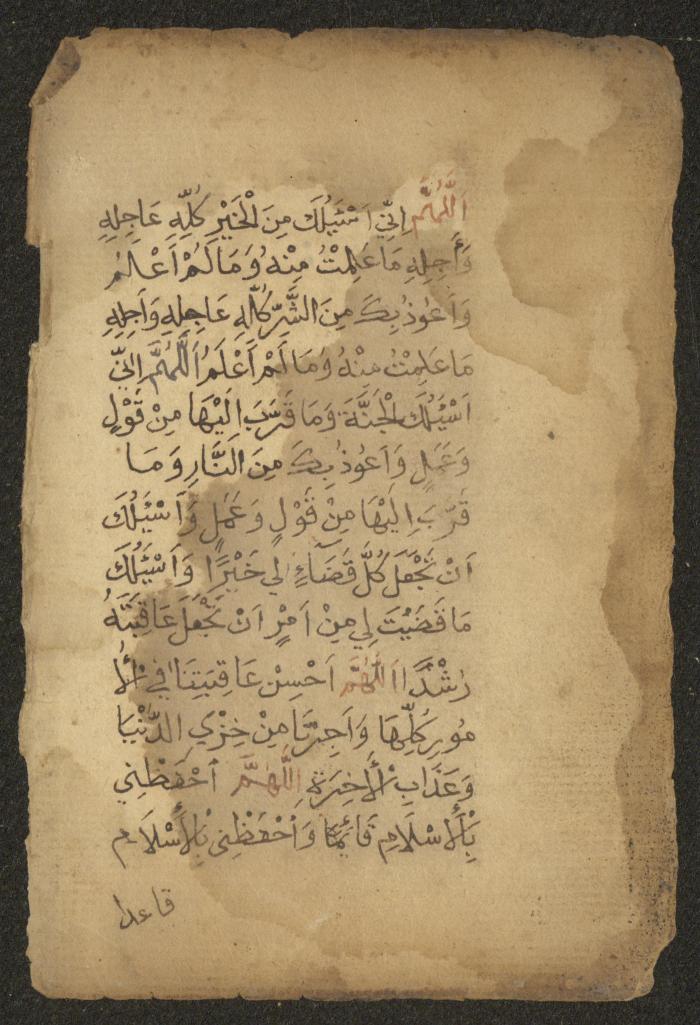 اَللّٰهُمَّ اِنِّي اَسْئَلُكَ مِنَ الْخَيْرِ كُلِّهِ عَاجِلِهِ
وَأَجِلِهِ مَا عَلِمْتُ مِنْهُ وَمَا لَمْ اَعْلَمُ
وَاَعُوذُ بِكَ مِنَ الشَّرِّ كُلِّهِ عَاجِلِهِ وَاَجِلِهِ
مَا عَلِمْتُ مِنْهُ وَمَا لَمْ اَعْلَمُ اَللّٰهُمَّ اِنِّي
اَسْئَلُكَ الْجَنَّةَ وَمَا قَرَّبَ اِلَيْهَا مِنْ قَوْلٍ
وَعَمَلٍ وَاَعُوذُ بِكَ مِنَ النَّارِ وَمَا
قَرَّبَ اِلَيْهَا مِنْ قَوْلٍ وَعَمَلٍ وَاَسْئَلُكَ
اَنْ تَجْعَلَ كُلَّ قَضَآءٍ لِي خَيْرًا وَاَسْئَلُكَ
مَا قَضَيْتَ لِي مِنْ اَمْرٍ اَنْ تَجْعَلَ عَاقِبَتَهُ
رُشْدًا اَللّٰهُمَّ اَحْسِنْ عَاقِبَتِنَا فِي الْأُ
مُورِ كُلِّهَا وَاَجِرْنَا مِنْ خِزْيِ الدُّنْيَا
وَعَذَابِ الْأَخِرَةِ اَللّٰهُمَّ اَحْفَظْنِي
بِالْأِسْلَامِ قَائِمًا وَاَحْفَظْنِي بِالْأِسْلَامِ
قاعدا